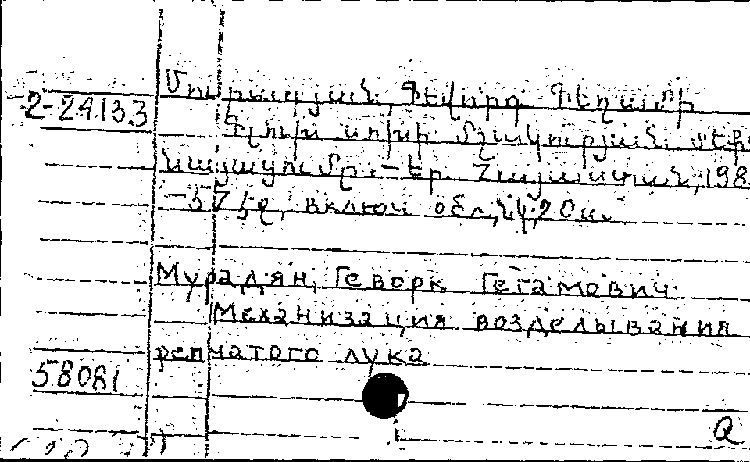 Մուրադյան, Գևորգ Գեղամի
2-24133
Գլուխ սոխի մշակության մեքե
նայացումը.- Եր. Հայաստան, 198
-57, 5գ, включ обл, 20սմ.
Мурадян, Геворк Гегамович
Механизация возделывания
репчатого лука
58081
Q